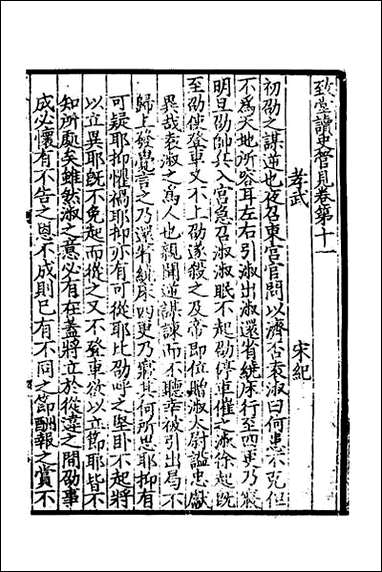 致堂讀史管見卷第十一
孝武　宋紀
初劭之謀逆也夜召東宮官問以濟否袁淑曰何患不克但
不為天地所容耳左右引淑出淑還省繞床行至四更乃寢
明旦劭帥兵入宮急召淑淑眠不起劭停車催之淑徐起既
至劭使登車又不上劭遂殺之及帝即位贈淑太尉謚忠獻
異哉袁淑之為人也親聞逆謀諫而不聽幸被引出局不
歸上發覺言之乃還省繞床四更乃寢其何所思耶抑有
可疑耶抑懼禍耶抑亦有可從耶比劭呼之堅臥不起將
以立異耶既不免起而從之又不登車欲以立節耶皆不
知所處矣雖然淑之意必有在蓋將立於從違之間劭事
成必懷有不告之恩不成則已有不同之節酬報之賞不